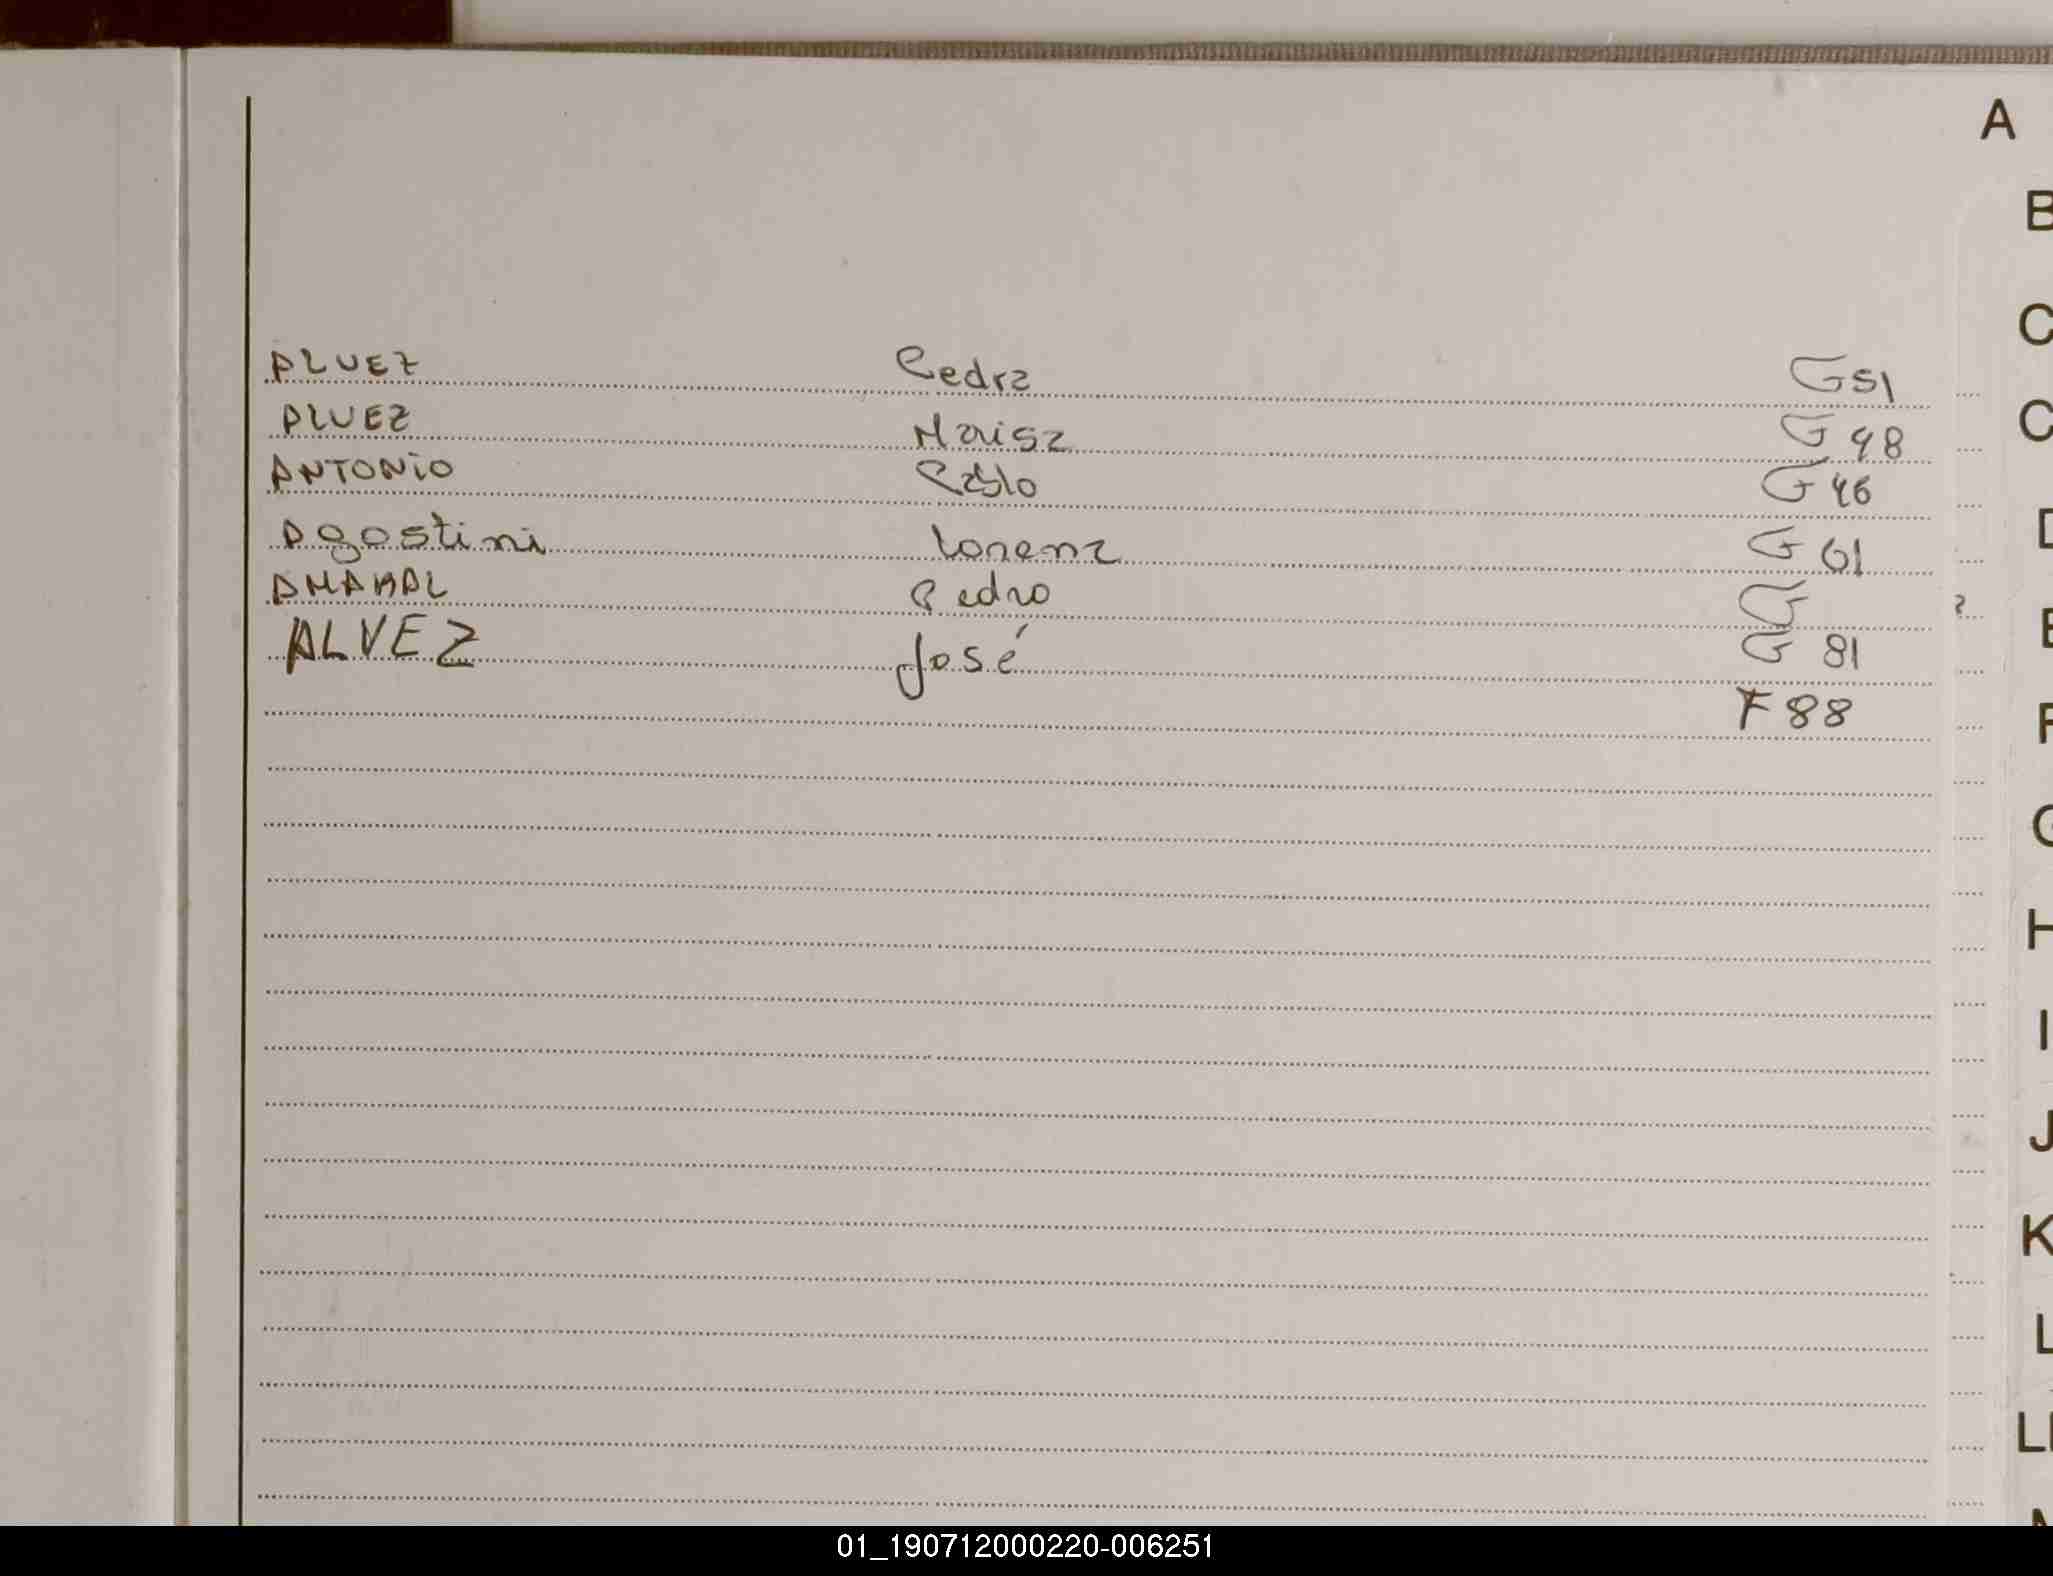 A
B
C
C
ALVEZ Pedro G51
ALVEZ Maisa G 48
ANTONIO Pablo G 46
Agostini Lorena G 61
D
AMARAL Pedro G
E
ALVEZ José G 81
F 88
F
G
H
I
J
K
L
LL
01_190712000220-006251